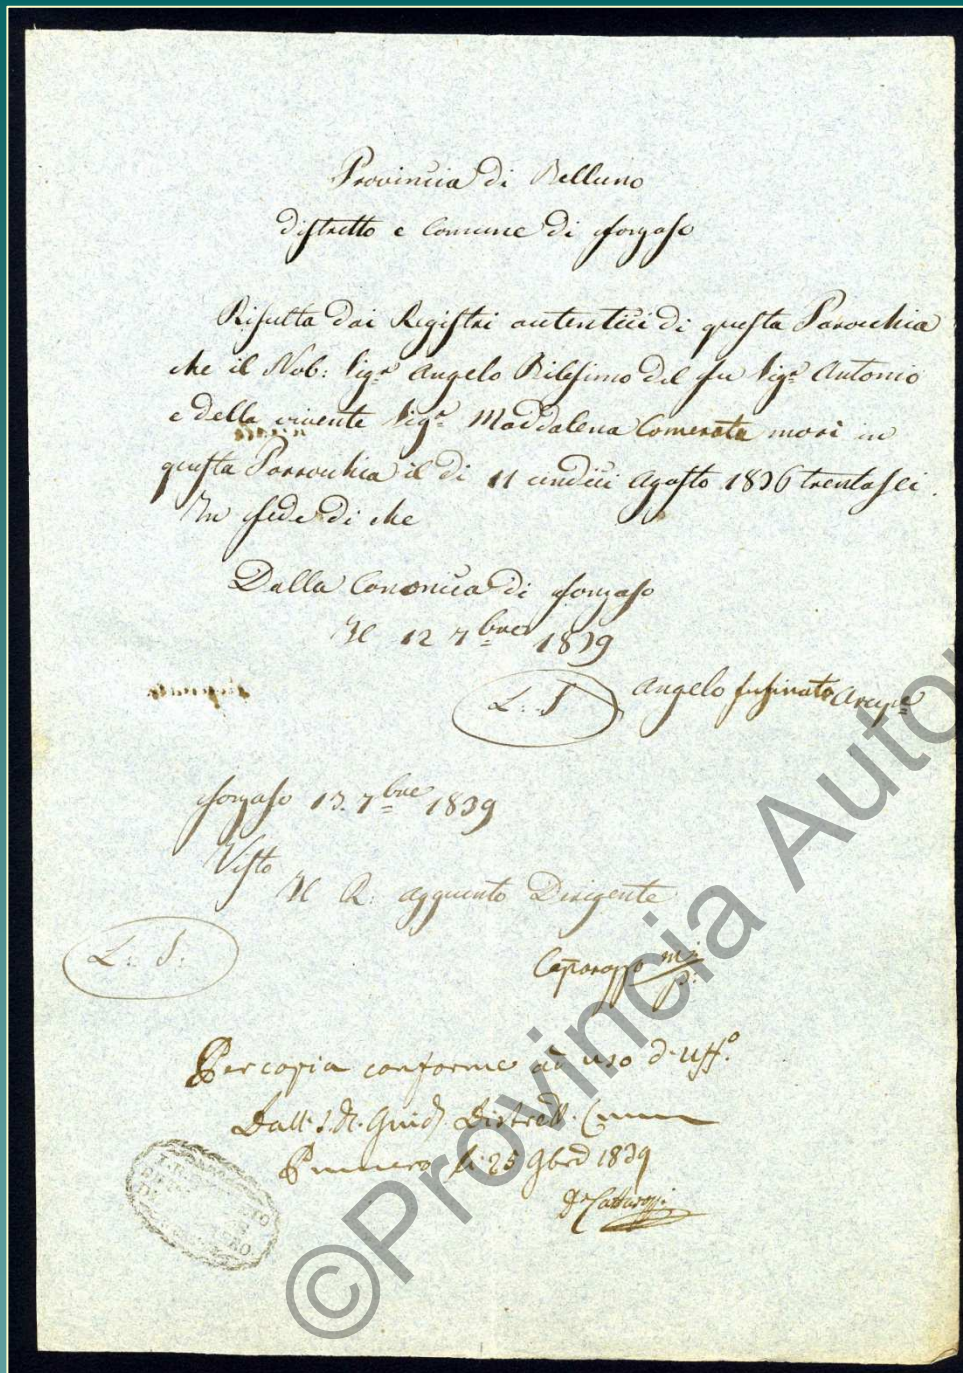 Provincia di Belluno
distretto e Comune di Fonzaso
Risulta dai Registri autentici di questa Parocchia
che il Nob: Sigr Angelo Bilesimo del fu Sigr Antonio
e della vivente Sigra Maddalena Comerata morì in
questa Parrocchia il dì 11 undici Agosto 1836 trentasei.
In fede di che
Dalla Canonica di Fonzaso
Il 12 7bre 1839
L. S Angelo Fusinato Arcipe
Fonzaso 13. 7bre 1839
Visto
Il R. Aggiunto Dirigente
L. S.
Caporazzo mp:
Per copia conforme ad uso d'Uffo.
Dall'I. R. Giud. Distrett.
Primiero li 25 9bre 1839
©Provincia Auto